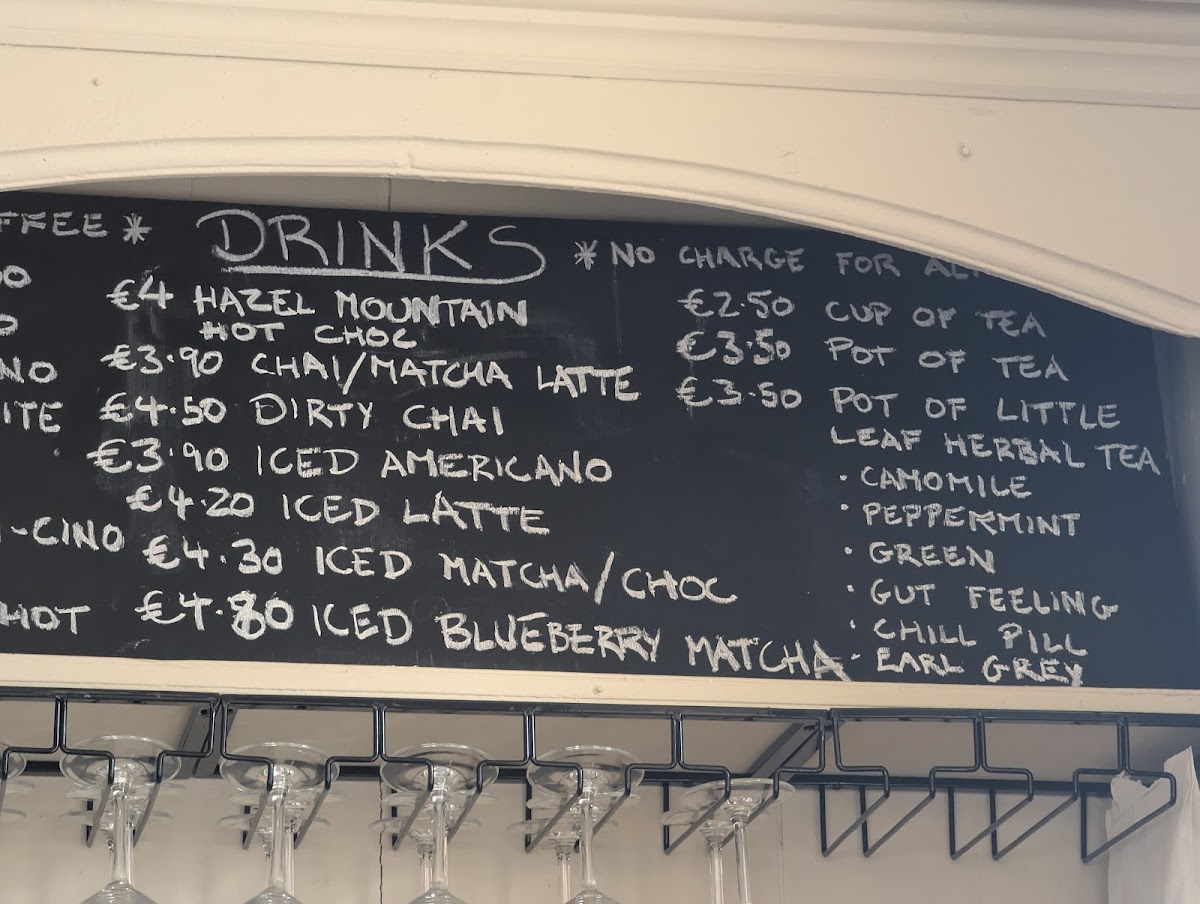 FFEE * DRINKS * NO CHARGE FOR
€4 HAZEL MOUNTAIN
HOT CHOC
€3.90 CHAI/MATCHA LATTE
€4.50 DIRTY CHAI
€3.90 ICED AMERICANO
€4.20 ICED LATTE
€4.30 ICED MATCHA/CHOC
€4.80 ICED BLUEBERRY MATCHA
NO
ITE
-CINO
HOT
€2.50 CUP OF TEA
€3.50 POT OF TEA
€3.50 POT OF LITTLE
LEAF HERBAL TEA
· CAMOMILE
· PEPPERMINT
· GREEN
· GUT FEELING
· CHILL PILL
· EARL GREY